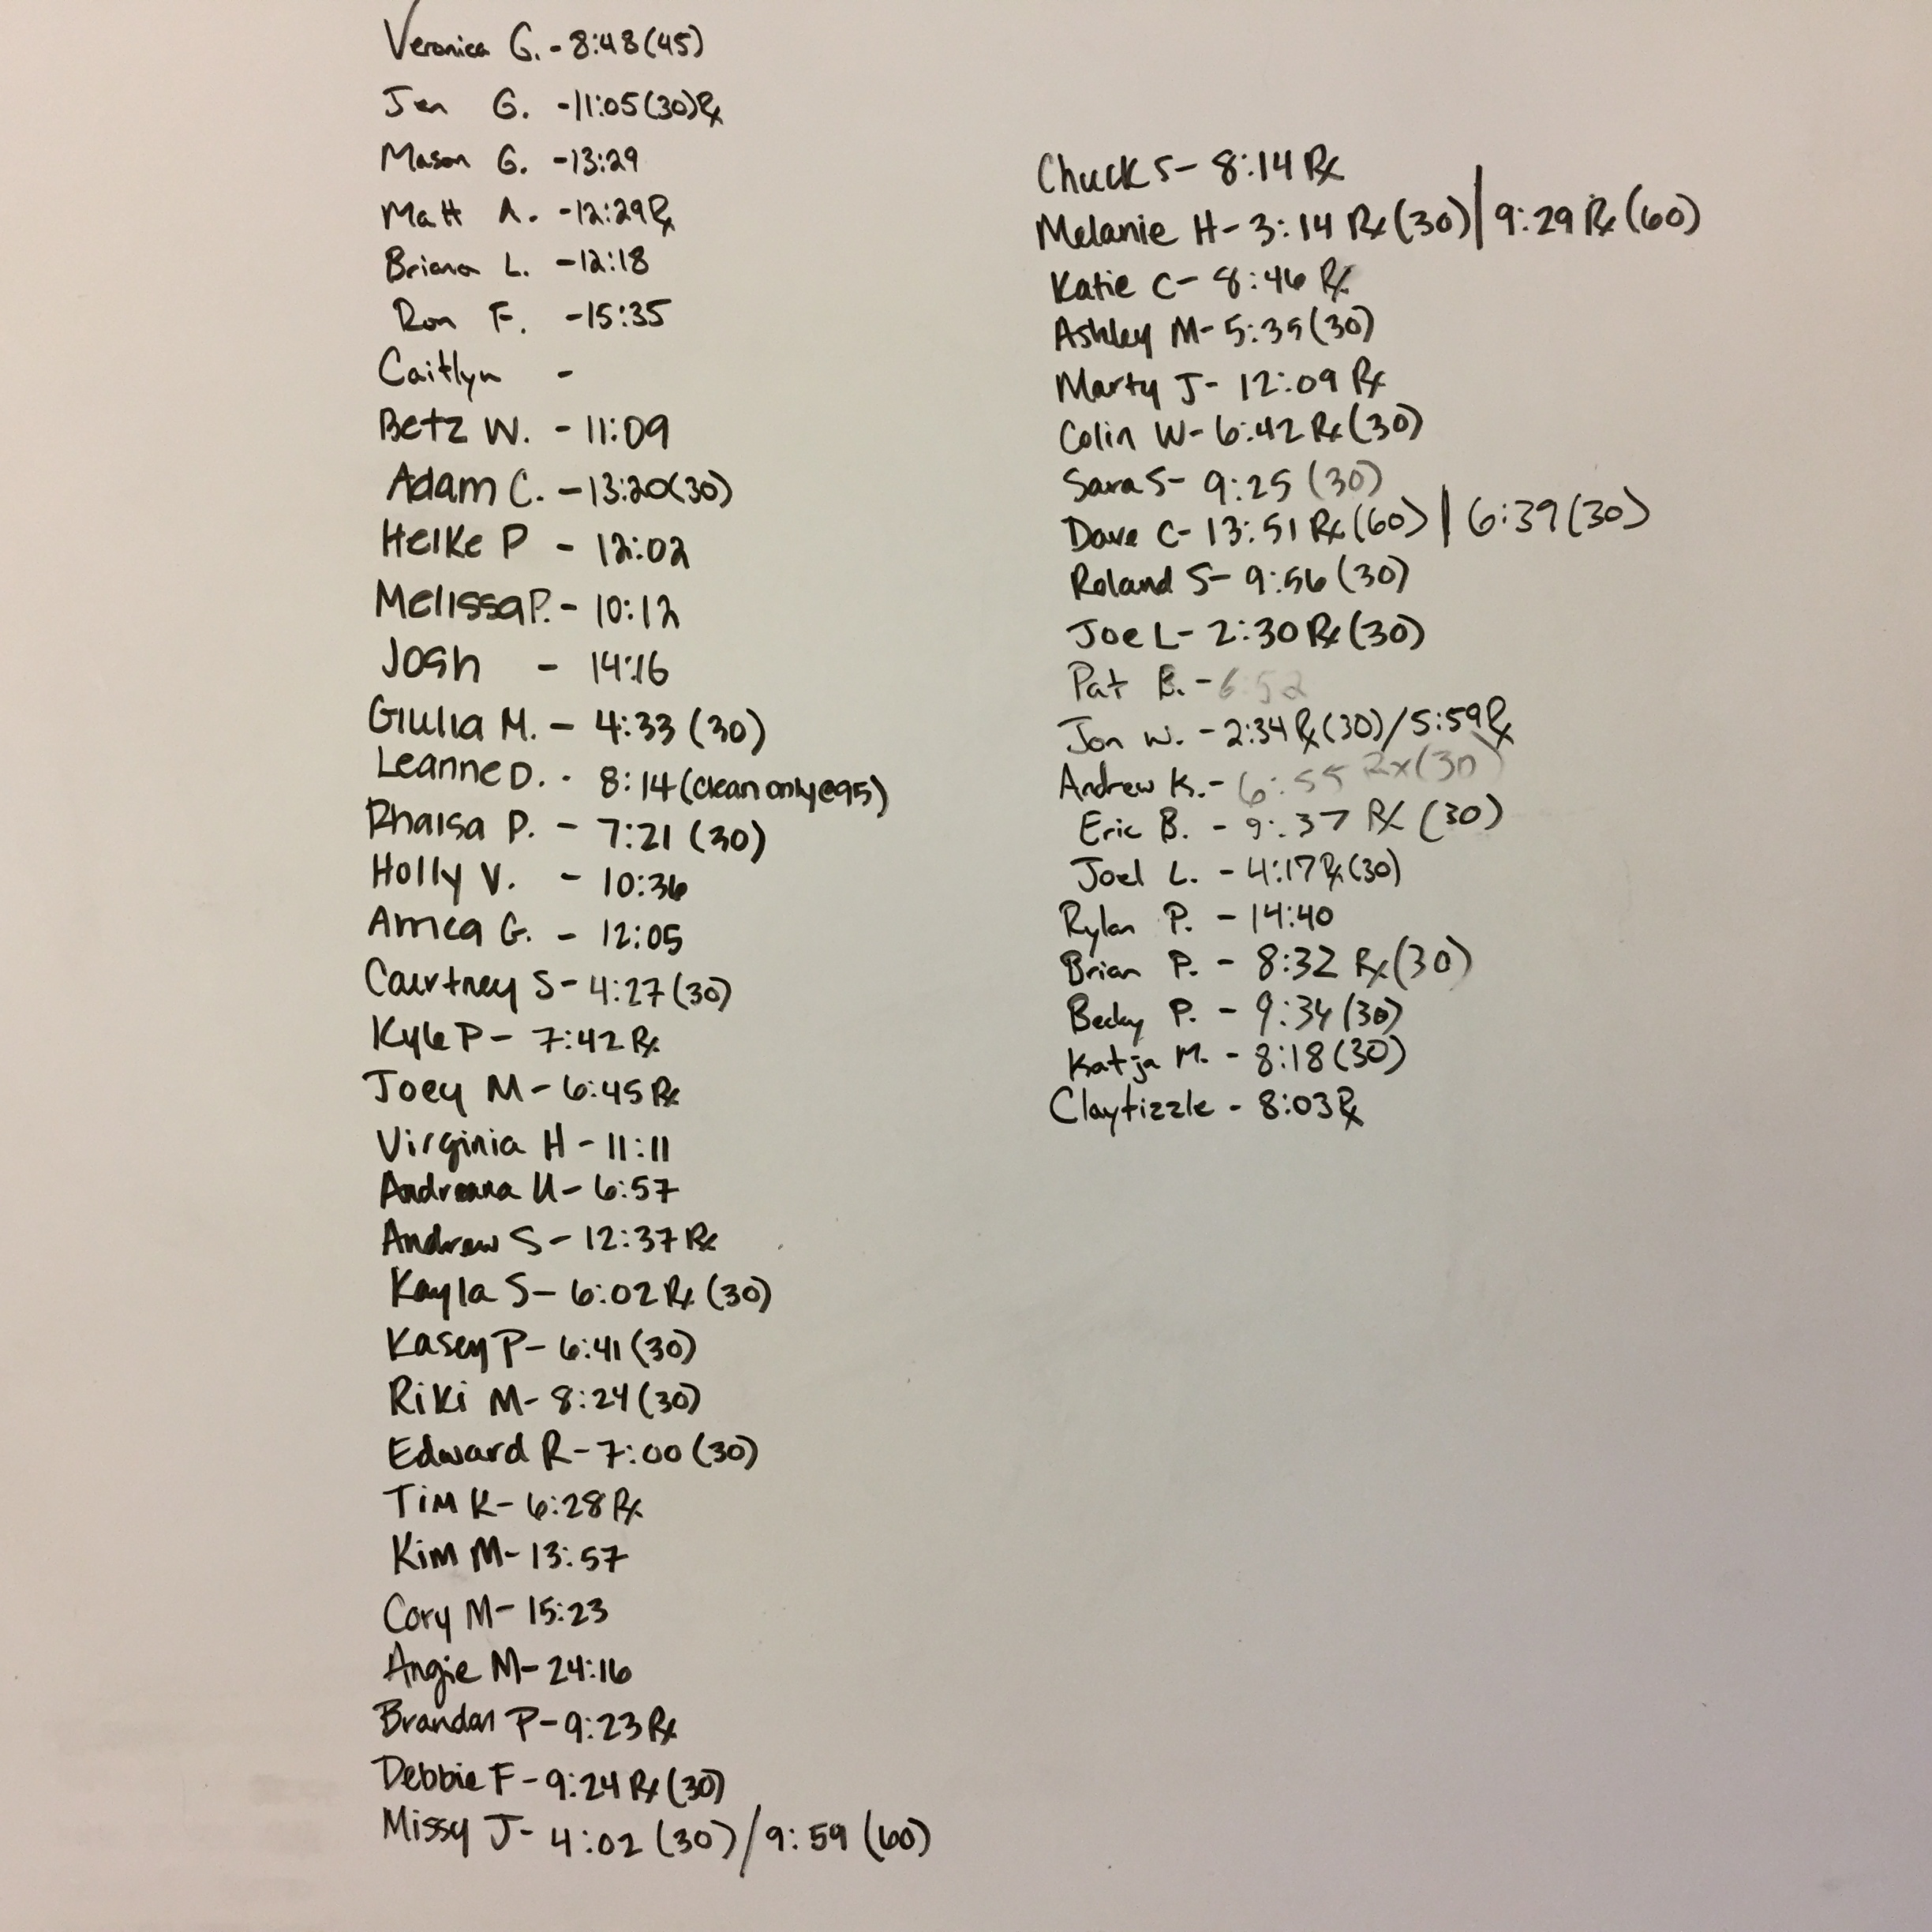 Veronica G. - 8:48 (45)
Jen G. - 11:05 (30) Rx
Mason G. - 13:29
Matt A. - 12:29 Rx
Briana L. - 12:18
Ron F. - 15:35
Caitlyn -
Betz W. - 11:09
Adam C. - 13:20 (30)
Heike P - 12:02
Melissa P. - 10:12
Josh - 14:16
Giulia M. - 4:33 (30)
Leanne D. - 8:14 (clean only @ 95)
Rhaisa P. - 7:21 (30)
Holly V. - 10:36
Arrica G. - 12:05
Courtney S - 4:27 (30)
Kyle P - 7:42 Rx
Joey M - 6:45 Rx
Virginia H - 11:11
Andreana U - 6:57
Andrew S - 12:37 Rx
Kayla S - 6:02 Rx (30)
Kasey P - 6:41 (30)
Riki M - 8:24 (30)
Edward R - 7:00 (30)
Tim K - 6:28 Rx
Kim M - 13:57
Cory M - 15:23
Angie M - 24:16
Brandan P - 9:23 Rx
Debbie F - 9:24 Rx (30)
Missy J - 4:02 (30) / 9:59 (60)
Chuck S - 8:14 Rx
Melanie H - 3:14 Rx (30) | 9:29 Rx (60)
Katie C - 8:46 Rx
Ashley M - 5:35 (30)
Marty J - 12:09 Rx
Colin W - 6:42 Rx (30)
Sara S - 9:25 (30)
Dave C - 13:51 Rx (60) | 6:39 (30)
Roland S - 9:56 (30)
Joe L - 2:30 Rx (30)
Pat B. - 6:52
Jon W. - 2:34 Rx (30) / 5:59 Rx
Andrew K. - 6:55 Rx (30)
Eric B. - 9:37 Rx (30)
Joel L. - 4:17 Rx (30)
Rylan P. - 14:40
Brian P. - 8:32 Rx (30)
Becky P. - 9:34 (30)
Katja M. - 8:18 (30)
Claytizzle - 8:03 Rx